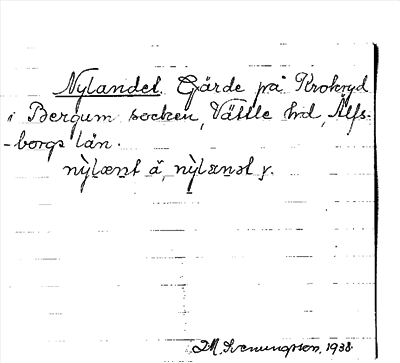 Nylandet. Gärde på Krokryd
i Bergum socken, Vättle hrd, Älfs-
-borgs län.
nỳlænt ä̆, nỳlænət y.
D.M. Svenungsson, 1938.